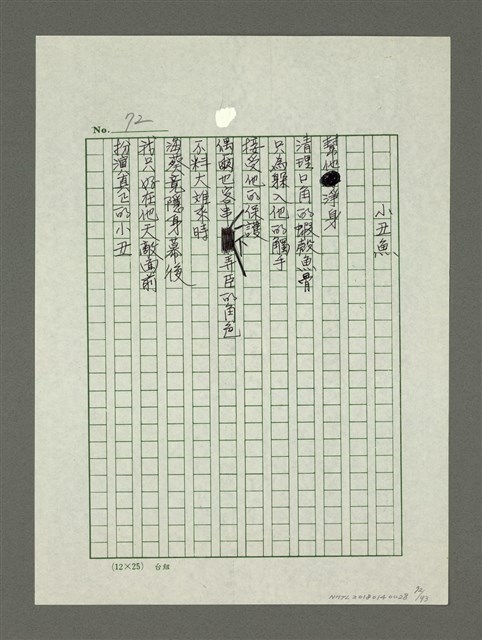 No. 72
小丑魚
幫他淨身
清理口角的蝦殼魚骨
只為躲入他的觸手
接受他的保護
偶爾也客串弄臣的角色
不料大難來時
海葵竟隱身幕後
我只好在他天敵面前
扮演真正的小丑
(12×25) 台組
NMTL20180140028
72/93